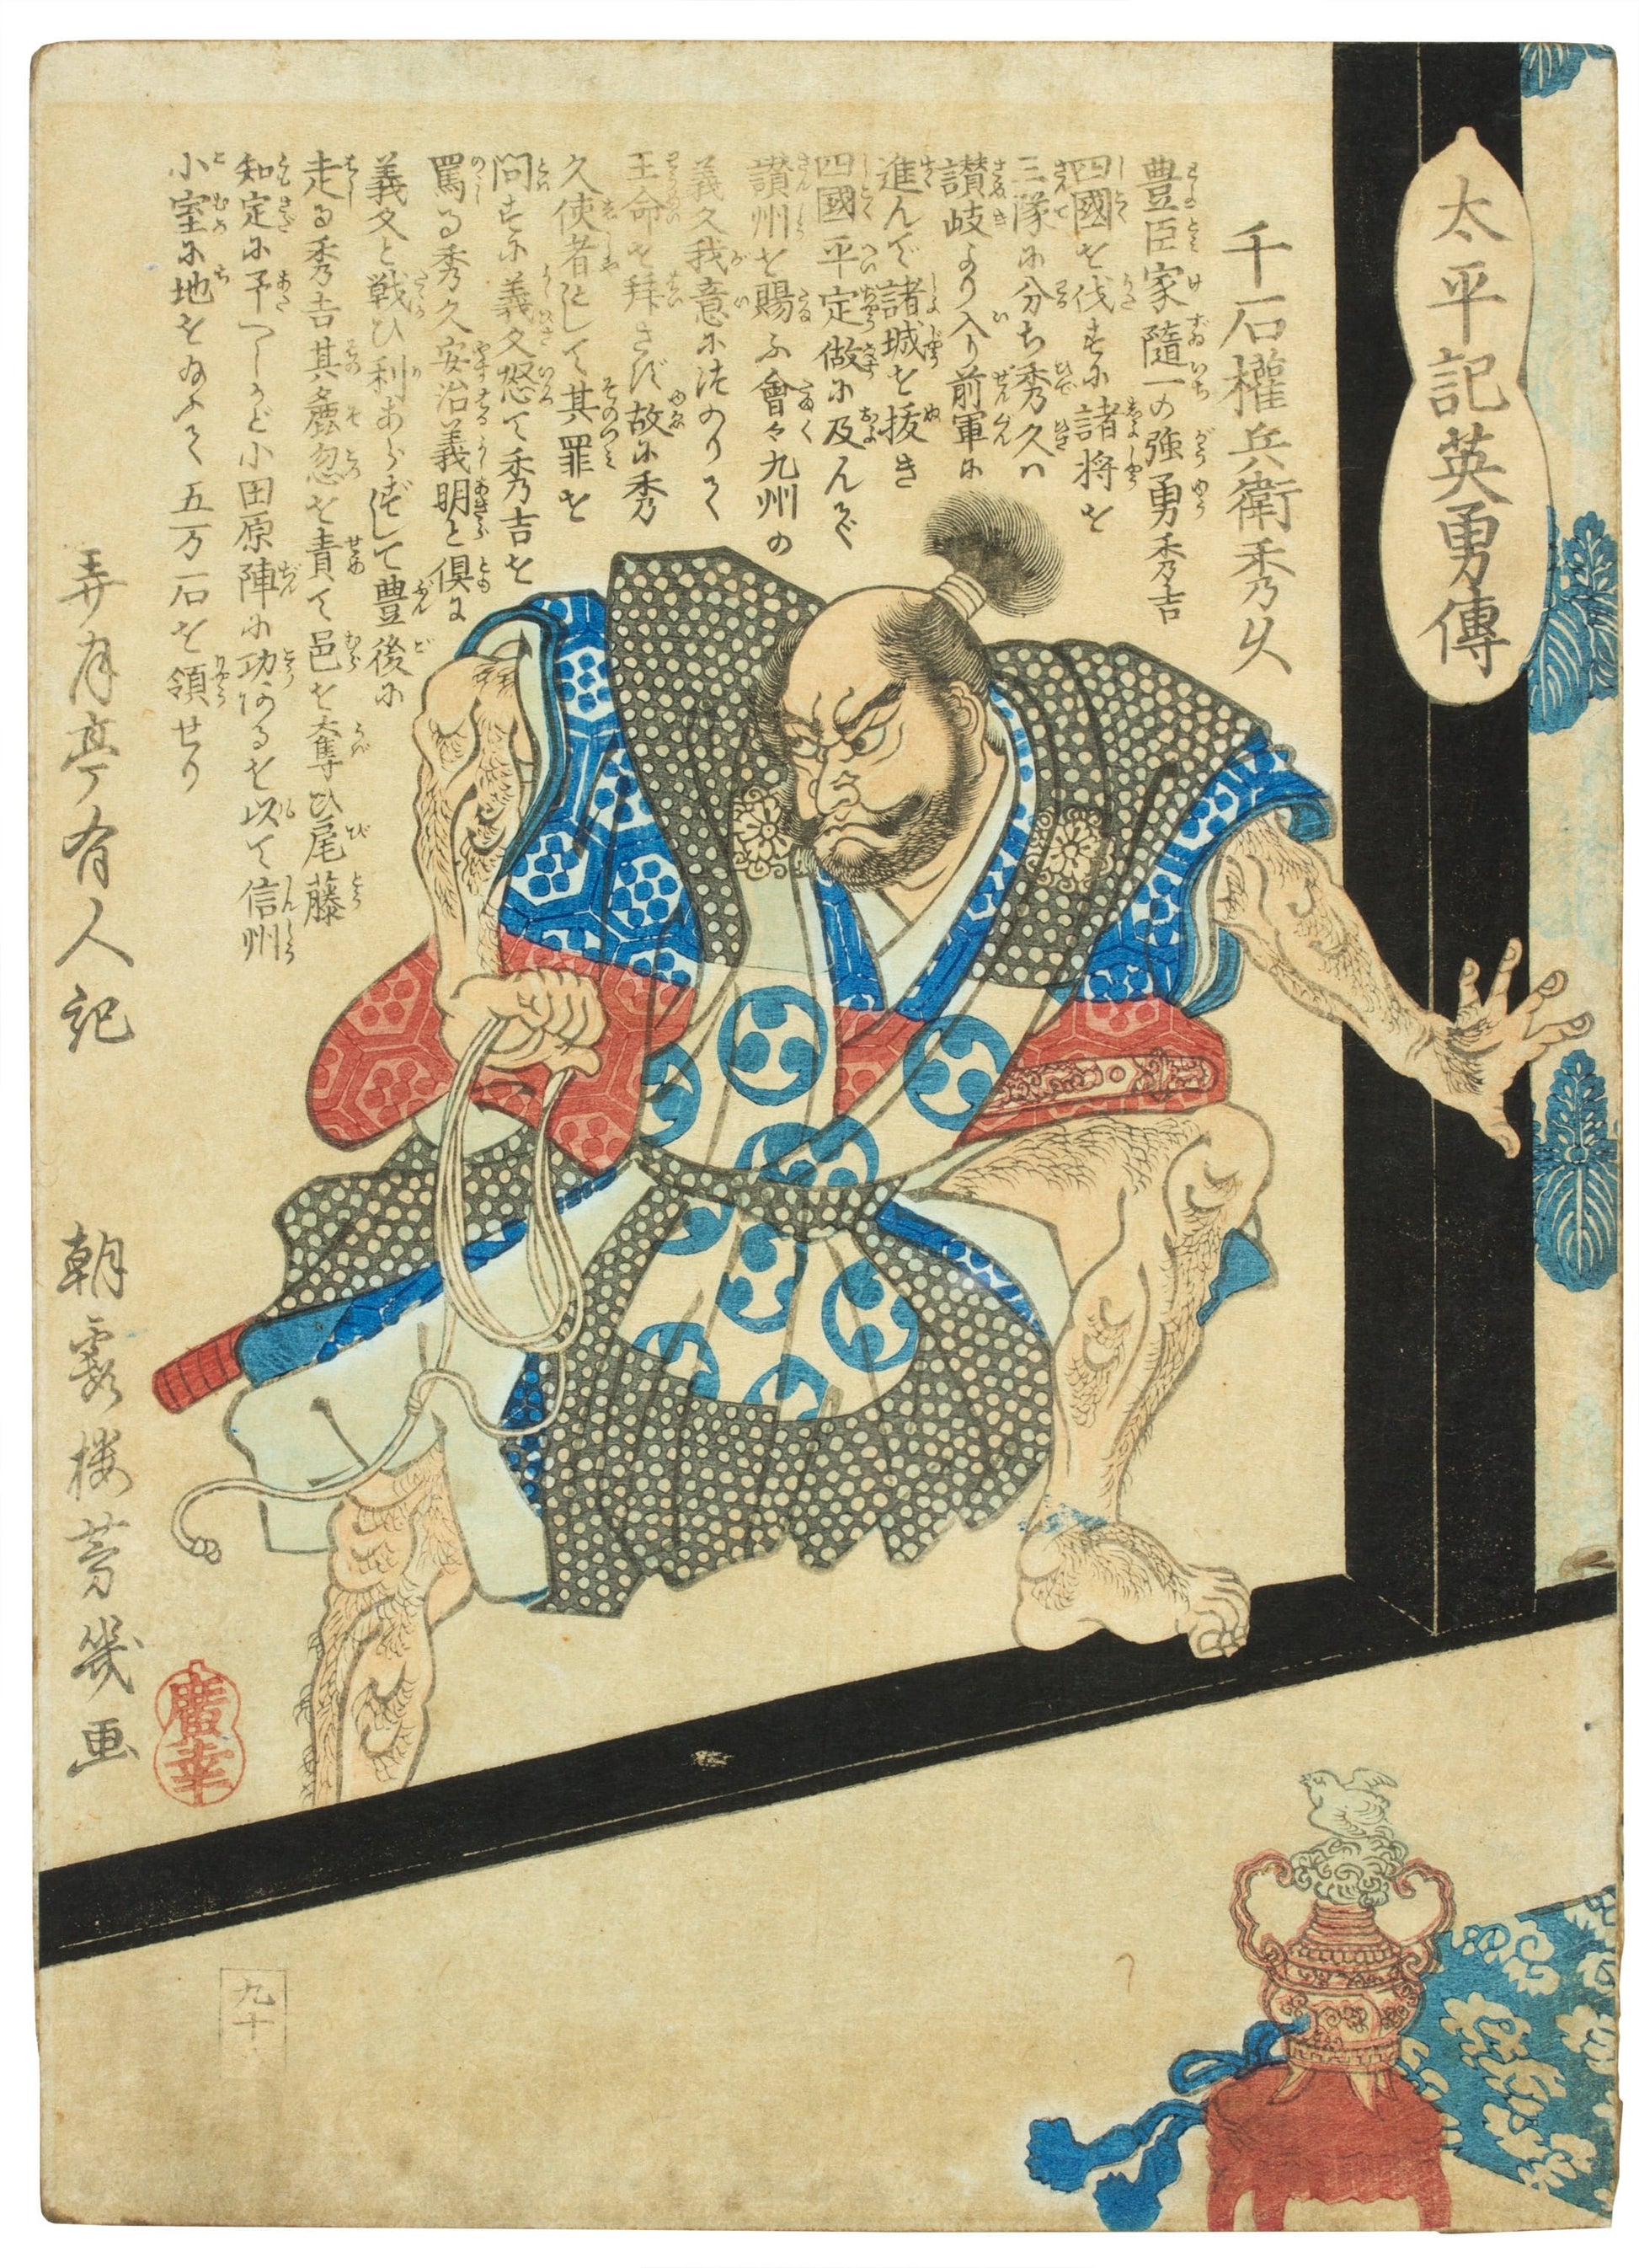 太平記英勇傳
千石權兵衛秀久
豊臣家隨一の強勇秀吉
四國を伐に諸将を
三隊に分ち秀久ハ
讃岐より入り前軍に
進んで諸城を抜き
四國平定做に及んで
讃州を賜ふ會々九州の
義久我意につのりて
王命を拝さず故に秀
久使者として其罪を
問に義久怒て秀吉を
罵る秀久安治義明と倶に
義久と戦ひ利あらずして豊後に
走る秀吉其麁忽を責て邑を奪ひ尾藤
知定に予へしかど小田原陣に功あるを以て信州
小室に地を五万石を領せり
弄月亭有人記
朝霞楼芳幾画
廣幸
九十